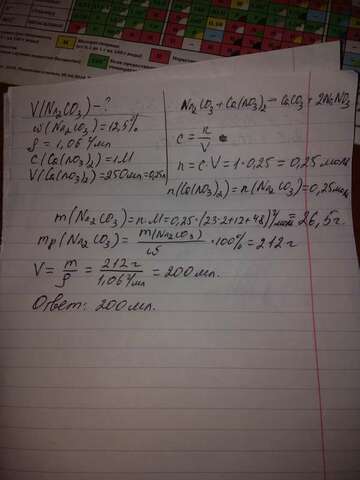 V(Na₂CO₃) - ?
ω(Na₂CO₃) = 12,5%
ρ = 1,06 г/мл
C(Ca(NO₃)₂) = 1М
V(Ca(NO₃)₂) = 250мл = 0,25л
Na₂CO₃ + Ca(NO₃)₂ = CaCO₃ + 2NaNO₃
c = n/V
n = c · V = 1 · 0,25 = 0,25 моль
n(Ca(NO₃)₂) = n(Na₂CO₃) = 0,25 моль
m(Na₂CO₃) = n · M = 0,25 · (23·2+12+48) г/моль = 26,5 г.
mр(Na₂CO₃) = m(Na₂CO₃)/ω · 100% = 212 г
V = m/ρ = 212 г/1,06 г/мл = 200 мл.
Ответ: 200 мл.